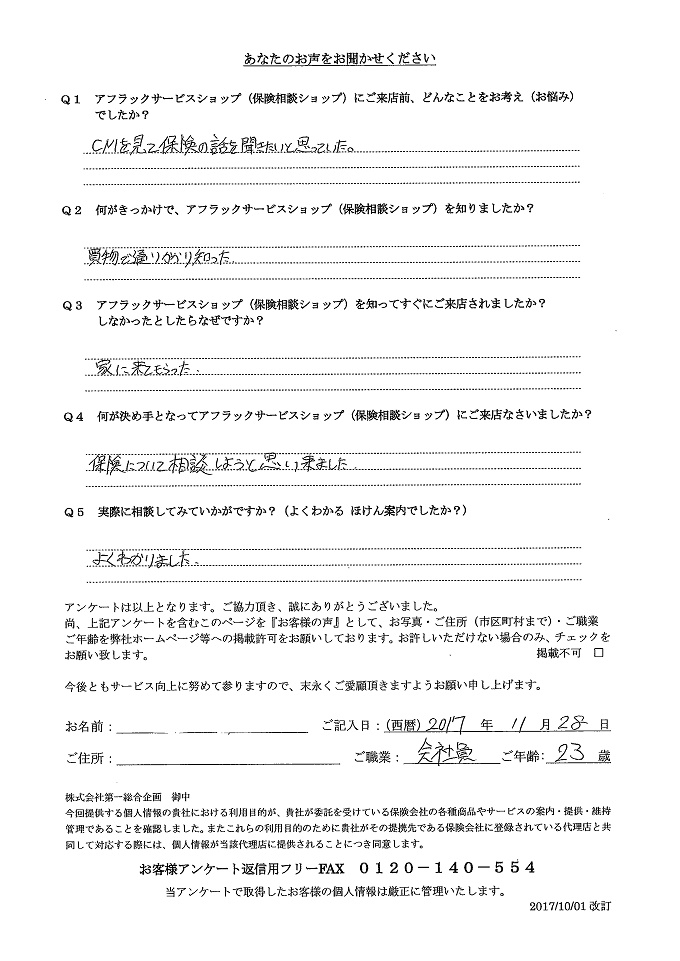 あなたのお声をお聞かせください
Q1 アフラックサービスショップ（保険相談ショップ）にご来店前、どんなことをお考え（お悩み）
でしたか？
CMを見て保険の話を聞きたいと思っていた。
Q2 何がきっかけで、アフラックサービスショップ（保険相談ショップ）を知りましたか？
買物で通りかかり知った.
Q3 アフラックサービスショップ（保険相談ショップ）を知ってすぐにご来店されましたか？
しなかったとしたらなぜですか？
家に来てもらった.
Q4 何が決め手となってアフラックサービスショップ（保険相談ショップ）にご来店なさいましたか？
保険について相談しようと思い来ました.
Q5 実際に相談してみていかがですか？（よくわかる ほけん案内でしたか？）
よくわかりました.
アンケートは以上となります。ご協力頂き、誠にありがとうございました。
尚、上記アンケートを含むこのページを『お客様の声』として、お写真・ご住所（市区町村まで）・ご職業
ご年齢を弊社ホームページ等への掲載許可をお願いしております。お許しいただけない場合のみ、チェックを
お願い致します。 掲載不可 □
今後ともサービス向上に努めて参りますので、末永くご愛顧頂きますようお願い申し上げます。
お名前： ご記入日：（西暦）2017 年 11 月 28 日
ご住所： ご職業： 会社員 ご年齢： 23 歳
株式会社第一総合企画 御中
今回提供する個人情報の貴社における利用目的が、貴社が委託を受けている保険会社の各種商品やサービスの案内・提供・維持
管理であることを確認しました。またこれらの利用目的のために貴社がその提携先である保険会社に登録されている代理店と共
同して対応する際には、個人情報が当該代理店に提供されることにつき同意します。
お客様アンケート返信用フリーFAX 0120－140－554
当アンケートで取得したお客様の個人情報は厳正に管理いたします。
2017/10/01 改訂